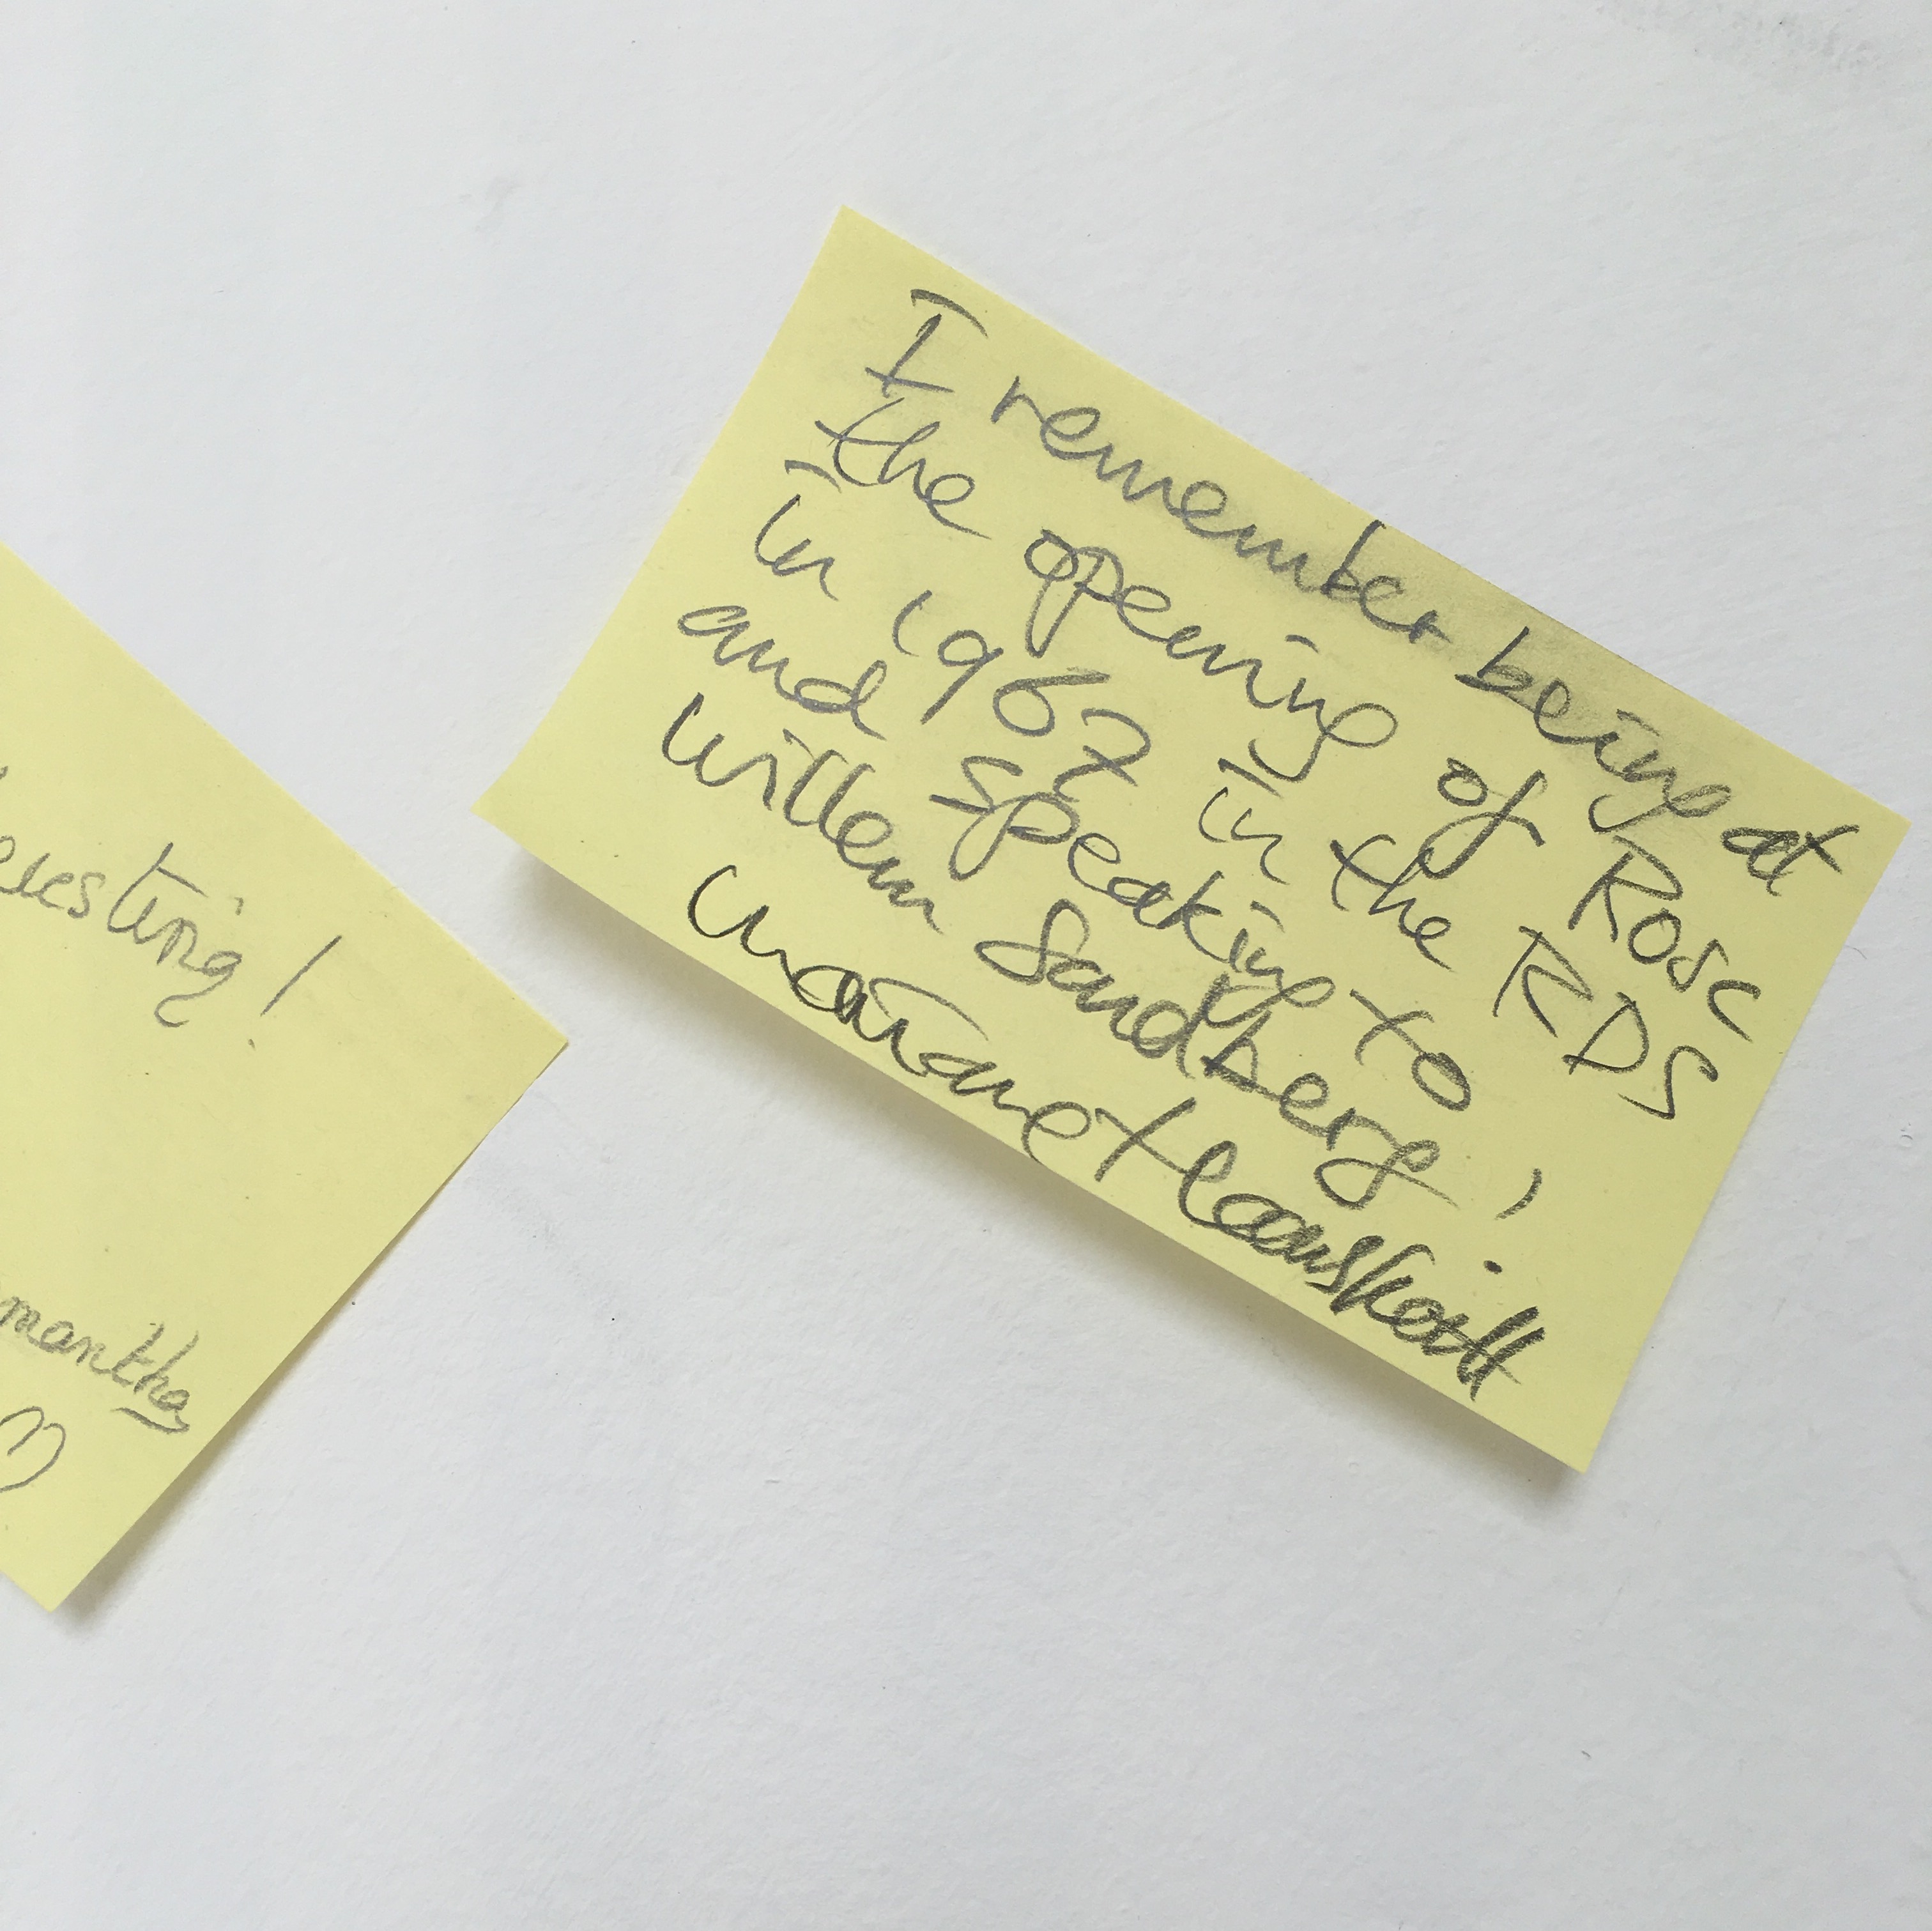 I remember being at
the opening of Rosc
in 1967 in the RDS
and speaking to
Willem Sandberg!
esting!
mantha